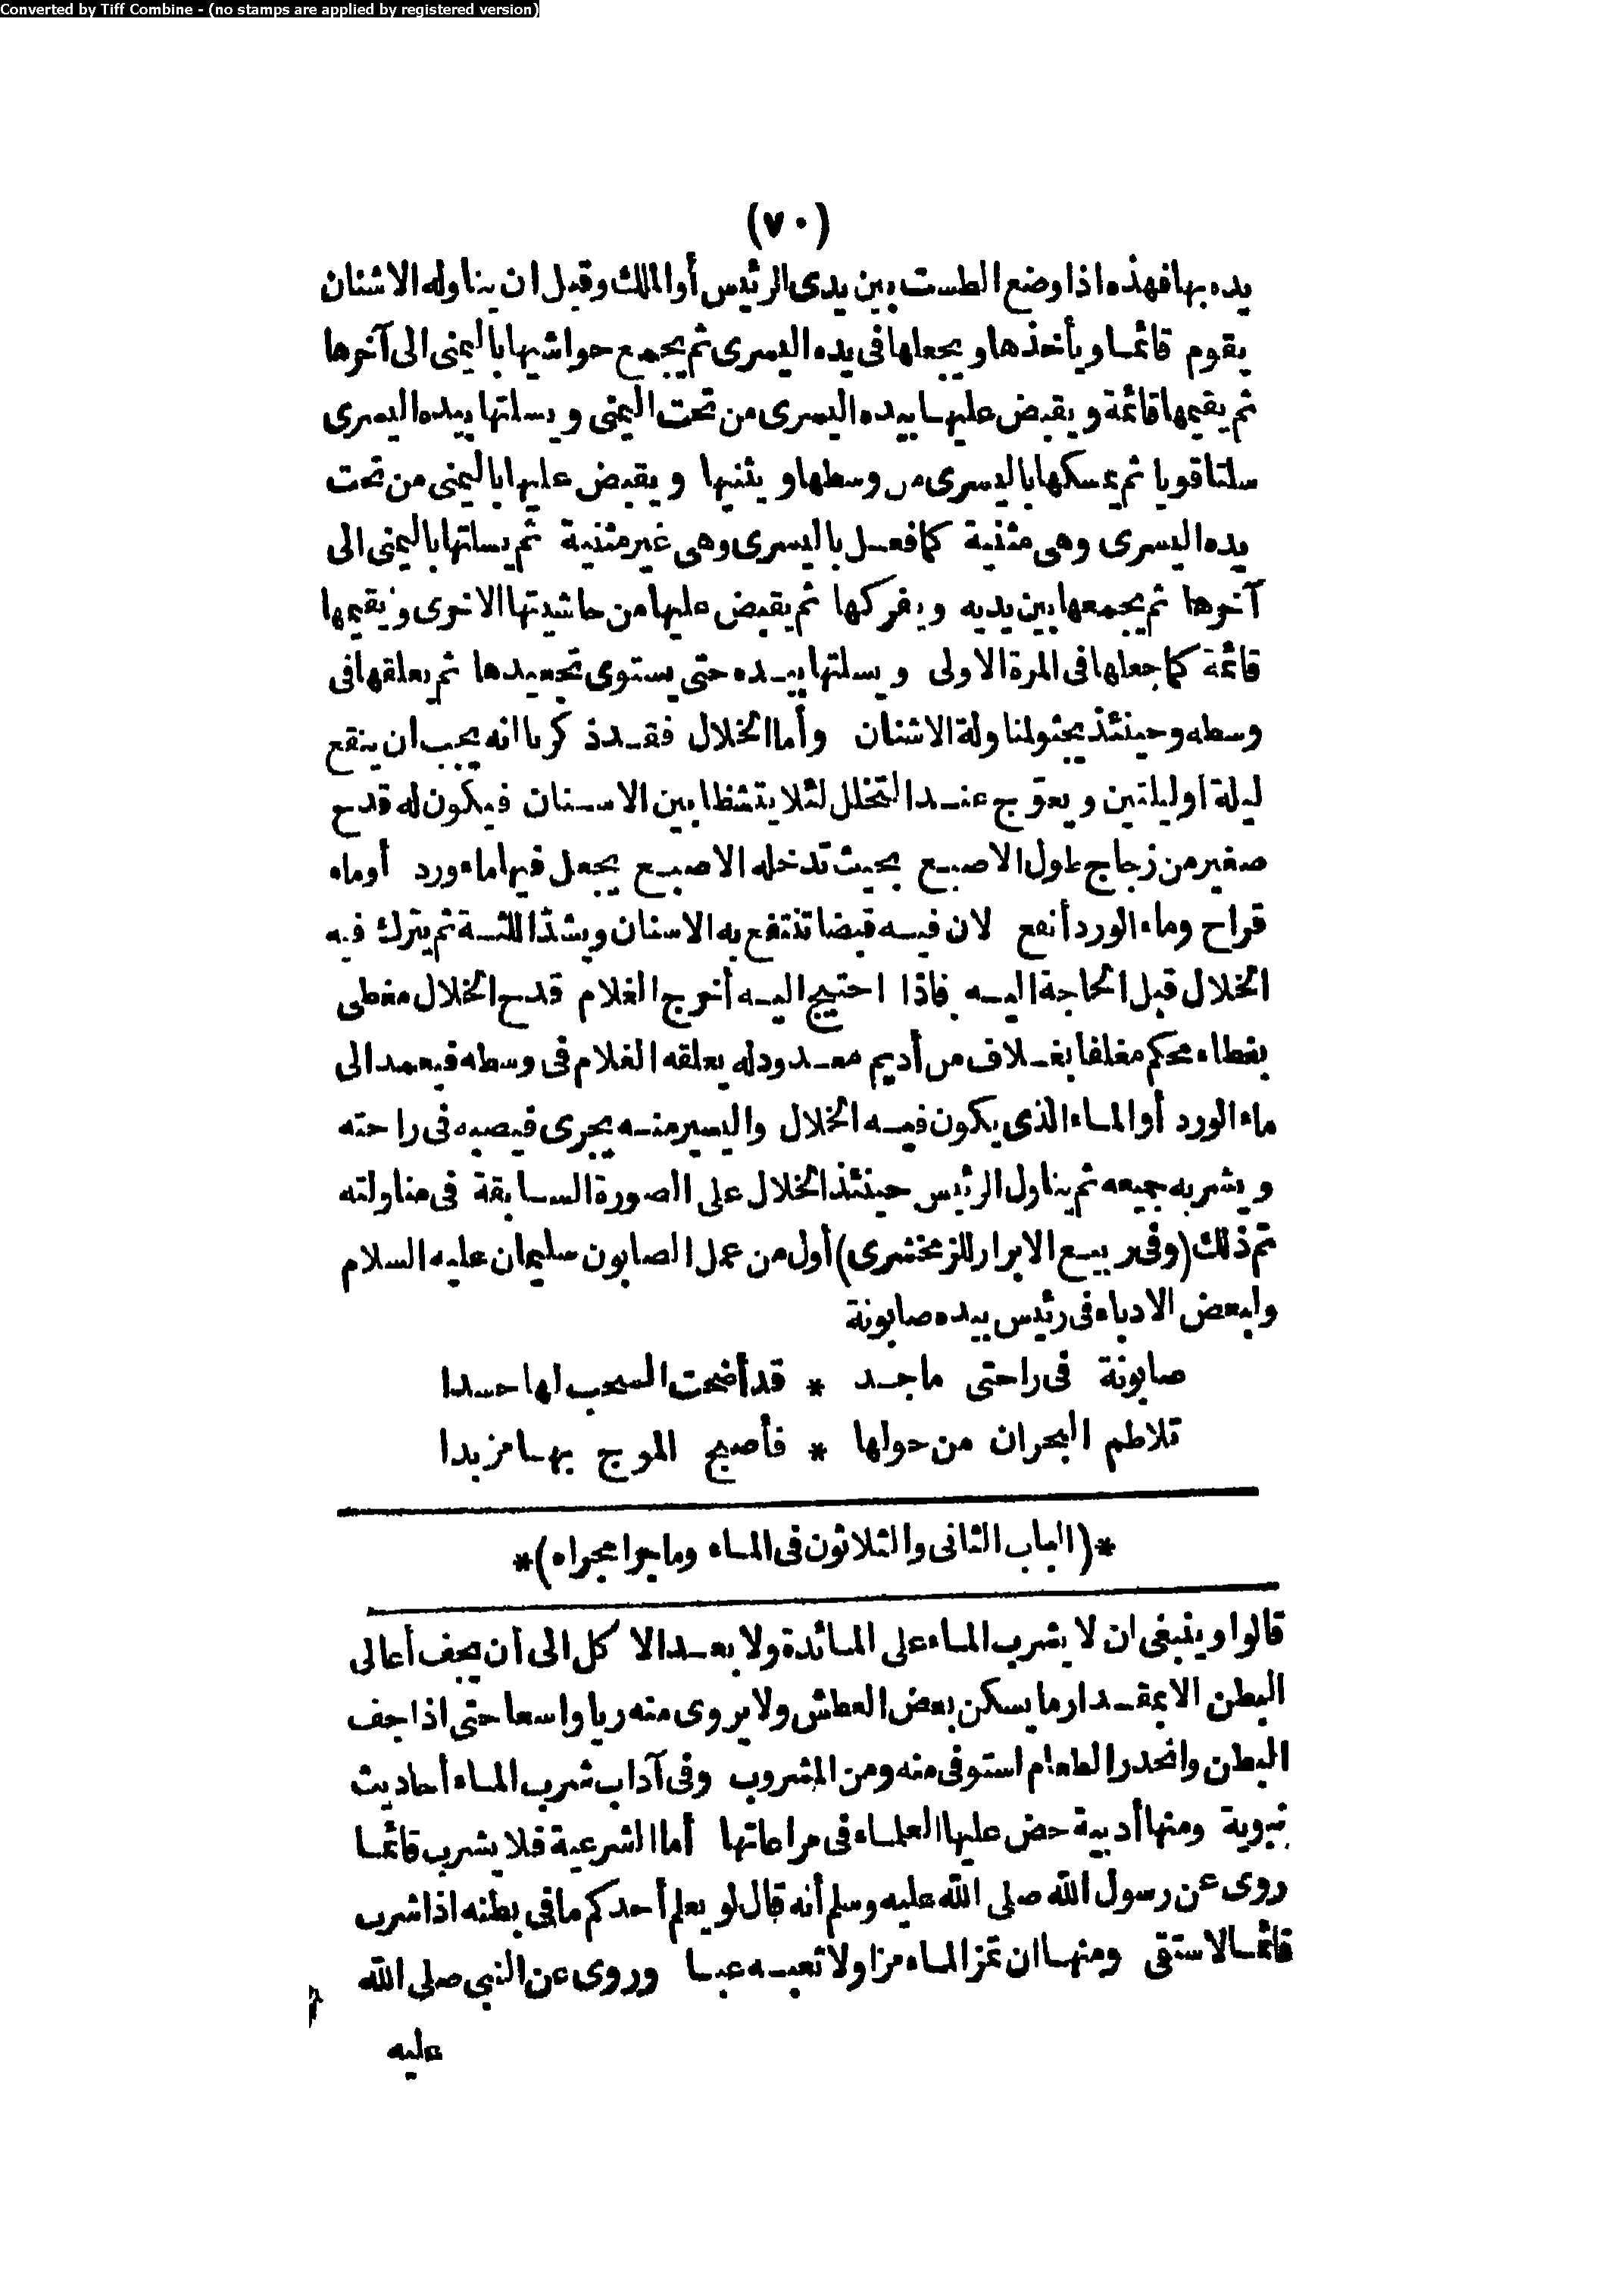 Converted by Tiff Combine - (no stamps are applied by registered version)
(٧٠)
يده بها فهذه اذا وضع الطست بين يدى الرئيس أوالملك وقبل ان يناوله الاشنان
يقوم قائما ويأخذها ويجعلها فى يده اليسرى ثم يجمع حواشيها باليمنى الى آخرها
ثم يقيمها قائمة ويقبض عليها بيده اليسرى من تحت اليمنى ويسلتها بيده اليسرى
سلتا قويا ثم يمسكها باليسرى من وسطها ويثنيها ويقبض عليها باليمنى من تحت
يده اليسرى وهى مثنية كما فعل باليسرى وهى غير مثنية ثم يسلتها باليمنى الى
آخرها ثم يجمعها بين يديه ويفركها ثم يقبض عليها من حاشيتها الاخرى ويقيمها
قائمة كما جعلها فى المرة الاولى ويسلتها بيده حتى يستوى تجعيدها ثم يعلقها فى
وسطه وحينئذ يجثو لمناولة الاشنان وأما الخلال فقد ذكرنا انه يجب ان ينقع
ليلة اوليلتين ويعوّج عند التخلل لئلا يتشظا بين الاسنان فيكون له قدح
صغير من زجاج طول الاصبع بحيث تدخله الاصبع يجعل فيها ماء ورد أوماء
قراح وماء الورد أنفع لان فيه قبضا تنتفع به الاسنان ويشد اللثة ثم يترك فيه
الخلال قبل الحاجة اليه فاذا احتيج اليه أخرج الغلام قدح الخلال مغطى
بغطاء محكم مغلفا بغلاف من أديم معدود له يعلقه الغلام فى وسطه فيعمد الى
ماء الورد أوالماء الذى يكون فيه الخلال واليسير منه يجرى فيصبه فى راحته
ويشربه جميعه ثم يناول الرئيس حينئذ الخلال على الصورة السابقة فى مناولته
تم ذلك (وفى ربيع الابرار للزمخشرى) أول من عمل الصابون سليمان عليه السلام
ولبعض الادباء فى رئيس بيده صابونة
صابونة فى راحتى ماجد * قد أضحت السحب لها حسدا
تلاطم البحران من حولها * فأصبح الموج بها مزبدا
*(الباب الثانى والثلاثون فى الماء وما جرا مجراه)*
قالوا وينبغى ان لا يشرب الماء على المائدة ولا بعد الاكل الى أن يجف أعالى
البطن الا بمقدار ما يسكن بعض العطش ولا يروى منه ريا واسعا حتى اذا جف
البطن وانحدر الطعام استوفى منه ومن المشروب وفى آداب شرب الماء أحاديث
نبوية ومنها أدبية حض عليها العلماء فى مراعاتها أما الشرعية فلا يشرب قائما
روى عن رسول الله صلى الله عليه وسلم أنه قال لو يعلم أحدكم ما فى بطنه اذا شرب
قائما لاستقى ومنها ان تمز الماء مزا ولا تعبه عبا وروى عن النبي صلى الله
عليه